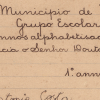 Municipio de
Grupo Escolar
nnos alphabetisa
cia o Senhor Dout
1º anno
tonio Costa